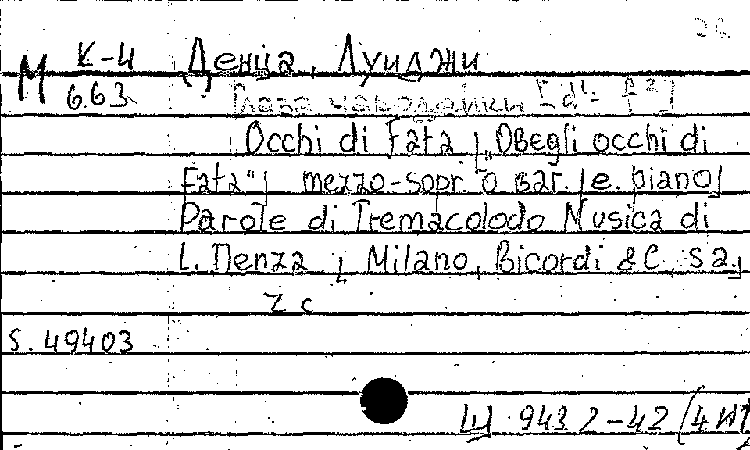 М К-4 Денца, Луиджи
6.63 Глаза чародейки [d¹- f²]
Occhi di Fata [„O begli occhi di
Fata"] mezzo-sopr. o bar. [e. piano]
Parole di Tremacoldo Musica di
L. Denza [Milano, Ricordi & C, s a.]
7 c
S. 49403
Ш 943 2-42 (4 И)